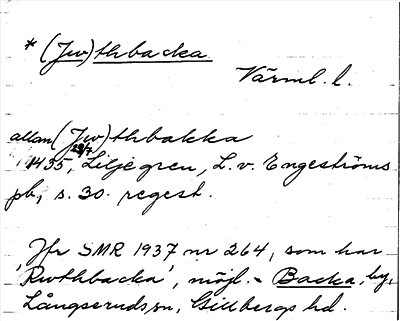 * (Jw)thbacka
Värml. l.
allan (Jw)thbakka
1435 23/7, Liljegren, L. v. Engeströms
pb, s. 30. regest.
Jfr SMR 1937 nr 264, som har
'Rwthbacka', möjl. = Backa, by,
Långseruds sn, Gillbergs hd.